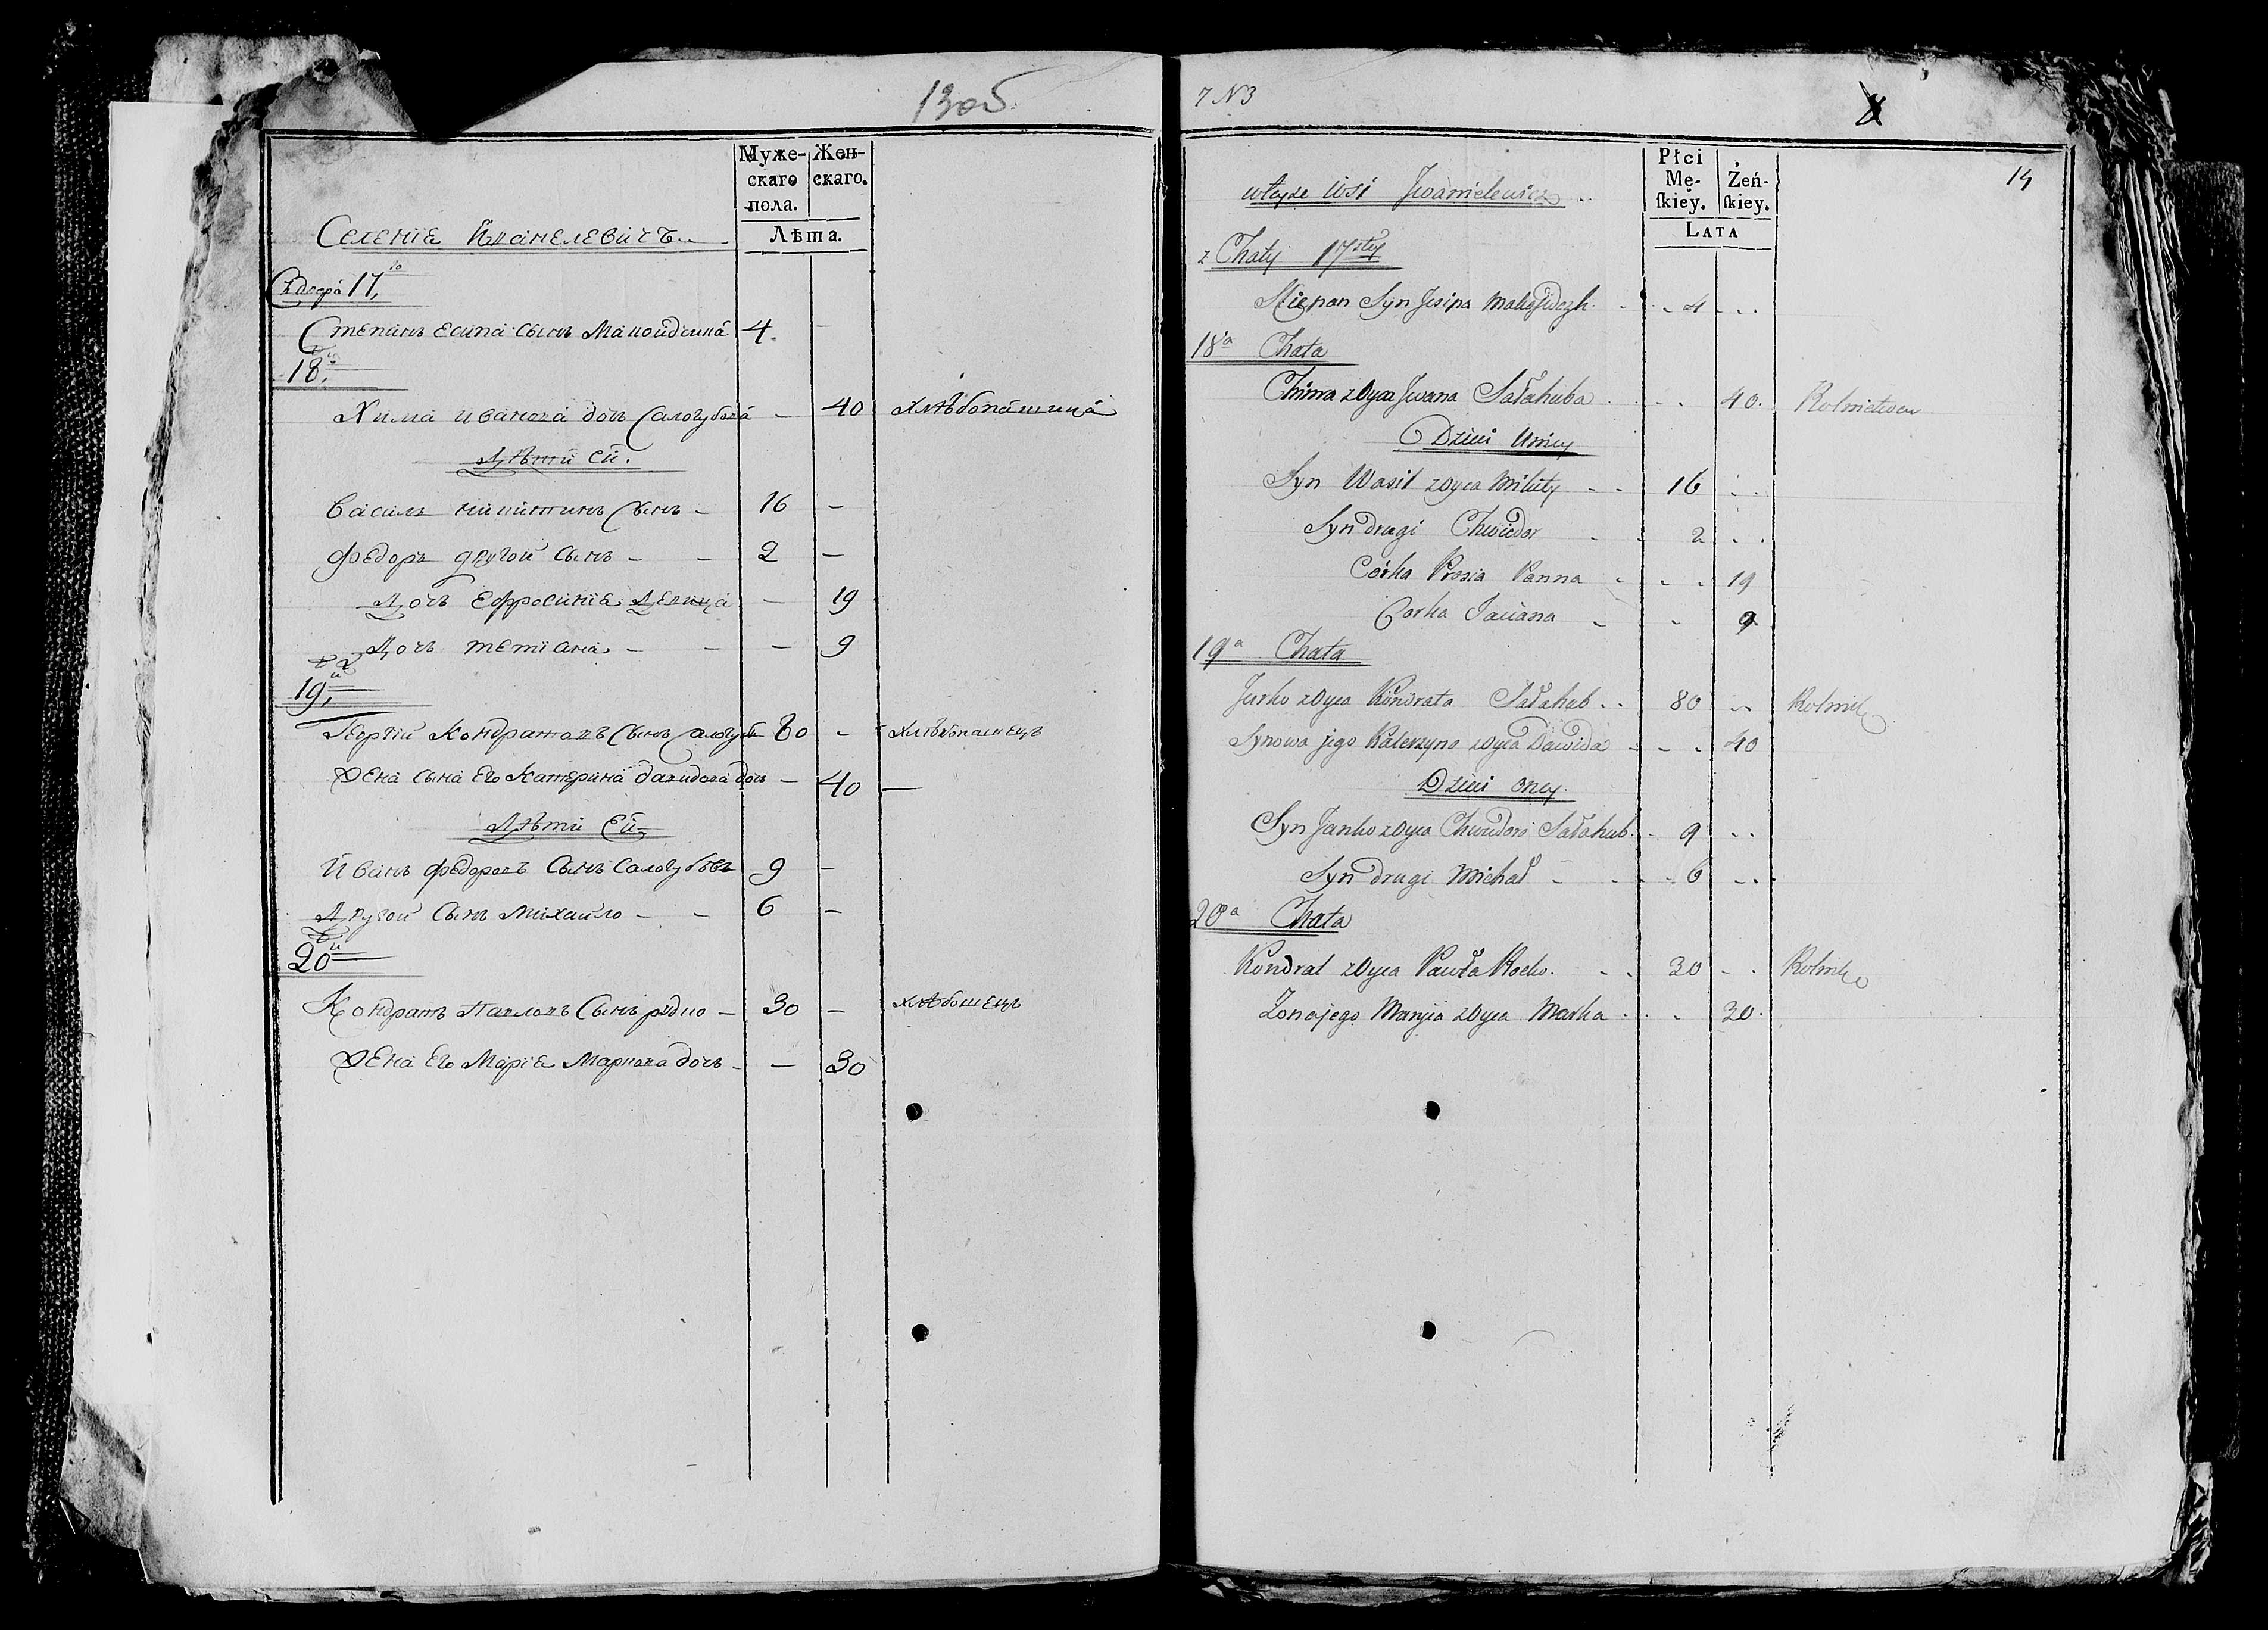 13об.
Муже- Жен-
скаго скаго.
пола.
Лѣта.
Селеніе Иванелевичъ
Сдвора 17го
Степанъ есипа сынъ 4. —
18й
Хима иванова дочь Салогубова — 40 хлѣбопашица
Дѣти ей.
Василь никитинъ Сынъ — 16 —
Федоръ другой сынъ — — 2 —
Дочь Ефросиніе Девица — 19
Дочь тетіана — — — 9
19й
Георгій Кондратовъ Сынъ Салогуб 80 — хлѣбопашецъ
Жена сына Его Катерина давидова дочь — 40 —
Дѣти Ей
Иванъ федоровъ Сынъ Салогубовъ 9 —
Другой Сынъ Михайло — — 6 —
20й
Кондратъ Павловъ Сынъ — 30 —
Жена Его Маріе Маркова дочь — — 30
7 N3
14
Płci
Mę- Żeń-
ſkiey. ſkiey.
LATA
wteyze Wsi Jwanielewicz
z Chaty 17stey
Stiepan Syn Josipa - - 4 - - -
18a Chata
Chima z Oyca Jwana Sałahuba - - - 40.
Dzieci Oney
Syn Wasil z Oyca Mikity - - 16 - -
Syn drugi Chwiedor - - 2 - -
Córka Prosia Panna - - - 19
Corka Taciana - - 9
19a Chata
Jurko z Oyca Kondrata Sałahub - - 80 - - Rolnik
Synowa jego Katerzyna z Oyca Dawida - - - 40
Dzieci Oney.
Syn Janko z Oyca Chwiedora Sałahub. - 9 - -
Syn drugi Michał - - - - 6 - - -
20a Chata
Kondrat z Oyca Pawła - - 30 - - Rolnik
Żona jego Maryia z Oyca Marka - - 30.